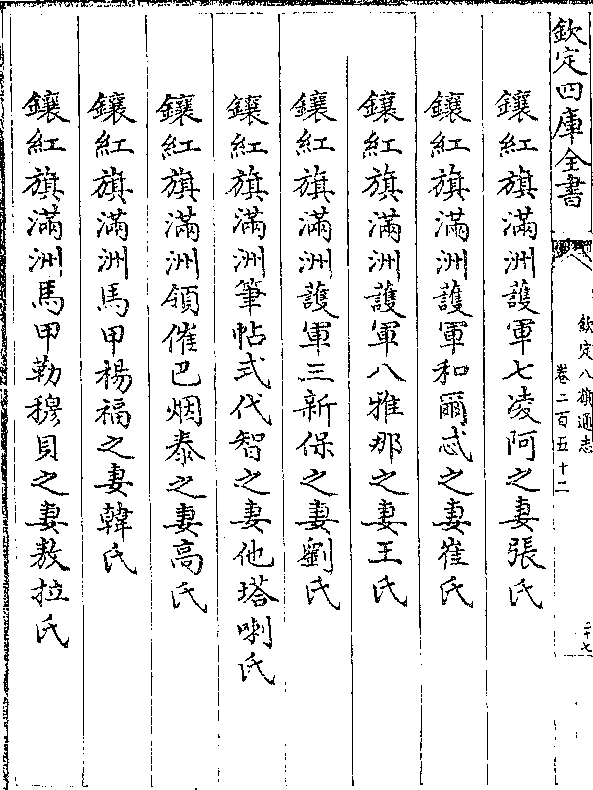 欽定四庫全書
欽定八旗通志
卷二百五十二
二十七
鑲紅旗滿洲護軍七凌阿之妻張氏
鑲紅旗滿洲護軍和爾忒之妻崔氏
鑲紅旗滿洲護軍八雅那之妻王氏
鑲紅旗滿洲護軍三新保之妻劉氏
鑲紅旗滿洲筆帖式代智之妻他塔喇氏
鑲紅旗滿洲領催巴烟泰之妻高氏
鑲紅旗滿洲馬甲楊福之妻韓氏
鑲紅旗滿洲馬甲勒穆貝之妻敖拉氏